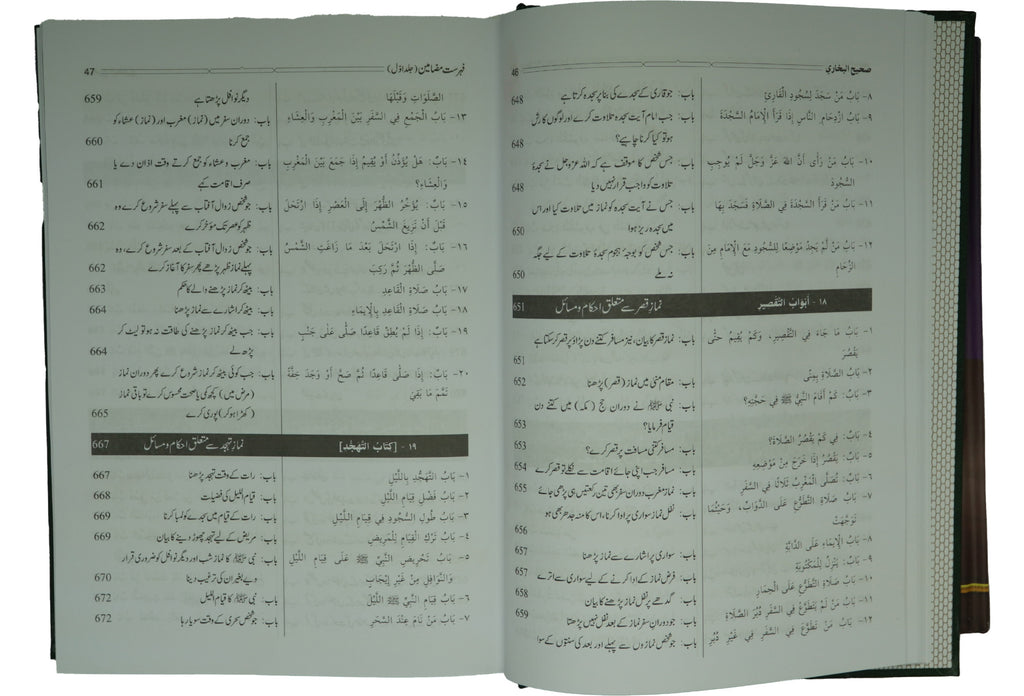 صحيح البخاري 46
۸- بَابُ مَنْ سَجَدَ لِسُجُودِ الْقَارِئِ باب: جو قاری کے سجدے کی بنا پر سجدہ کرتا ہے 648
۹- بَابُ ازْدِحَامِ النَّاسِ إِذَا قَرَأَ الْإِمَامُ السَّجْدَةَ باب: جب امام آیت سجدہ تلاوت کرے اور لوگوں کا رش
ہو تو کیا کرنا چاہیے؟ 648
۱۰- بَابُ مَنْ رَأَى أَنَّ اللهَ عَزَّ وَجَلَّ لَمْ يُوجِبِ باب: جس شخص کا موقف ہے کہ اللہ عزوجل نے سجدۂ
السُّجُودَ تلاوت کو واجب قرار نہیں دیا 648
۱۱- بَابُ مَنْ قَرَأَ السَّجْدَةَ فِي الصَّلَاةِ فَسَجَدَ بِهَا باب: جس نے آیت سجدہ کو نماز میں تلاوت کیا اور اس
میں سجدہ ریز ہوا 650
۱۲- بَابُ مَنْ لَمْ يَجِدْ مَوْضِعًا لِلسُّجُودِ مَعَ الْإِمَامِ مِنَ باب: جس شخص کو بوجہ ہجوم سجدۂ تلاوت کے لیے جگہ
الزِّحَامِ نہ ملے 650
۱۸- أبواب التقصير نماز قصر سے متعلق احکام و مسائل 651
۱- بَابُ مَا جَاءَ فِي التَّقْصِيرِ، وَكَمْ يُقِيمُ حَتَّى باب: نماز قصر کا بیان، نیز مسافر کتنے دن پڑاؤ پر قصر کر سکتا ہے
يَقْصُرَ 651
۲- بَابُ الصَّلَاةِ بِمِنًى باب: مقام منیٰ میں نماز (قصر) پڑھنا 652
۳- بَابٌ: كَمْ أَقَامَ النَّبِيُّ ﷺ فِي حَجَّتِهِ؟ باب: نبی ﷺ نے دوران حج (مکہ) میں کتنے دن
قیام فرمایا؟ 653
۴- بَابٌ: فِي كَمْ يَقْصُرُ الصَّلَاةَ؟ باب: مسافر کتنی مسافت پر قصر کرے؟ 653
۵- بَابٌ: يَقْصُرُ إِذَا خَرَجَ مِنْ مَوْضِعِهِ باب: مسافر جب اپنی جائے اقامت سے نکلے تو قصر کرے 654
۶- بَابٌ: تُصَلَّى الْمَغْرِبُ ثَلَاثًا فِي السَّفَرِ باب: نماز مغرب دوران سفر بھی تین رکعتیں ہی پڑھی جائے 655
۷- بَابُ صَلَاةِ التَّطَوُّعِ عَلَى الدَّوَابِّ، وَحَيْثُمَا باب: نفل نماز سواری پر ادا کرنا، اس کا منہ جدھر بھی ہو
تَوَجَّهَتْ 656
۸- بَابُ الْإِيمَاءِ عَلَى الدَّابَّةِ باب: سواری پر اشارے سے نماز پڑھنا 657
۹- بَابٌ: يَنْزِلُ لِلْمَكْتُوبَةِ باب: فرض نماز کے ادا کرنے کے لیے سواری سے اترے 657
۱۰- بَابُ صَلَاةِ التَّطَوُّعِ عَلَى الْحِمَارِ باب: گدھے پر نفل نماز پڑھنے کا بیان 658
۱۱- بَابُ مَنْ لَمْ يَتَطَوَّعْ فِي السَّفَرِ دُبُرَ الصَّلَاةِ باب: جو دوران سفر نماز کے بعد نفل نہیں پڑھتا 659
۱۲- بَابُ مَنْ تَطَوَّعَ فِي السَّفَرِ فِي غَيْرِ دُبُرِ باب: جو سفر میں نمازوں سے پہلے اور بعد کی سنتوں کے سوا
فہرست مضامین (جلد اوّل) 47
الصَّلَوَاتِ وَقَبْلَهَا دیگر نوافل پڑھتا ہے 659
۱۳- بَابُ الْجَمْعِ فِي السَّفَرِ بَيْنَ الْمَغْرِبِ وَالْعِشَاءِ باب: دوران سفر میں (نماز) مغرب اور (نماز) عشاء کو
جمع کرنا 660
۱۴- بَابٌ: هَلْ يُؤَذِّنُ أَوْ يُقِيمُ إِذَا جَمَعَ بَيْنَ الْمَغْرِبِ باب: مغرب و عشاء کو جمع کرتے وقت اذان دے یا
وَالْعِشَاءِ؟ صرف اقامت کہے 661
۱۵- بَابٌ: يُؤَخِّرُ الظُّهْرَ إِلَى الْعَصْرِ إِذَا ارْتَحَلَ باب: جو شخص زوال آفتاب سے پہلے سفر شروع کرے وہ
قَبْلَ أَنْ تَزِيغَ الشَّمْسُ ظہر کو عصر تک مؤخر کرے 662
۱۶- بَابٌ: إِذَا ارْتَحَلَ بَعْدَ مَا زَاغَتِ الشَّمْسُ باب: جو شخص زوال آفتاب کے بعد سفر شروع کرے، وہ
صَلَّى الظُّهْرَ ثُمَّ رَكِبَ پہلے نماز ظہر پڑھے پھر سفر کا آغاز کرے 662
۱۷- بَابُ صَلَاةِ الْقَاعِدِ باب: بیٹھ کر نماز پڑھنے والے کا حکم 663
۱۸- بَابُ صَلَاةِ الْقَاعِدِ بِالْإِيمَاءِ باب: بیٹھ کر اشارے سے نماز پڑھنا 664
۱۹- بَابٌ: إِذَا لَمْ يُطِقْ قَاعِدًا صَلَّى عَلَى جَنْبٍ باب: جب بیٹھ کر نماز پڑھنے کی طاقت نہ ہو تو لیٹ کر
پڑھ لے 664
۲۰- بَابٌ: إِذَا صَلَّى قَاعِدًا ثُمَّ صَحَّ أَوْ وَجَدَ خِفَّةً باب: جب کوئی بیٹھ کر نماز شروع کرے، پھر دوران نماز
تَمَّمَ مَا بَقِيَ (مرض میں) کچھ کمی یا صحت محسوس کرے تو باقی نماز
(کھڑا ہو کر) پوری کرے 665
۱۹- [كتاب التهجد] نماز تہجد سے متعلق احکام و مسائل 667
۱- بَابُ التَّهَجُّدِ بِاللَّيْلِ باب: رات کے وقت تہجد پڑھنا 667
۲- بَابُ فَضْلِ قِيَامِ اللَّيْلِ باب: قیام اللیل کی فضیلت 668
۳- بَابُ طُولِ السُّجُودِ فِي قِيَامِ اللَّيْلِ باب: رات کے قیام میں سجدے کو لمبا کرنا 669
۴- بَابُ تَرْكِ الْقِيَامِ لِلْمَرِيضِ باب: مریض کے لیے تہجد چھوڑ دینے کا بیان 669
۵- بَابُ تَحْرِيضِ النَّبِيِّ ﷺ عَلَى قِيَامِ اللَّيْلِ باب: نبی ﷺ کا نماز شب اور دیگر نوافل کو ضروری قرار
وَالنَّوَافِلِ مِنْ غَيْرِ إِيجَابٍ دیے بغیر ان کی ترغیب دینا 670
۶- بَابُ قِيَامِ النَّبِيِّ ﷺ اللَّيْلَ باب: نبی ﷺ کا قیام اللیل 672
۷- بَابُ مَنْ نَامَ عِنْدَ السَّحَرِ باب: جو شخص سحری کے وقت سویا رہا 672